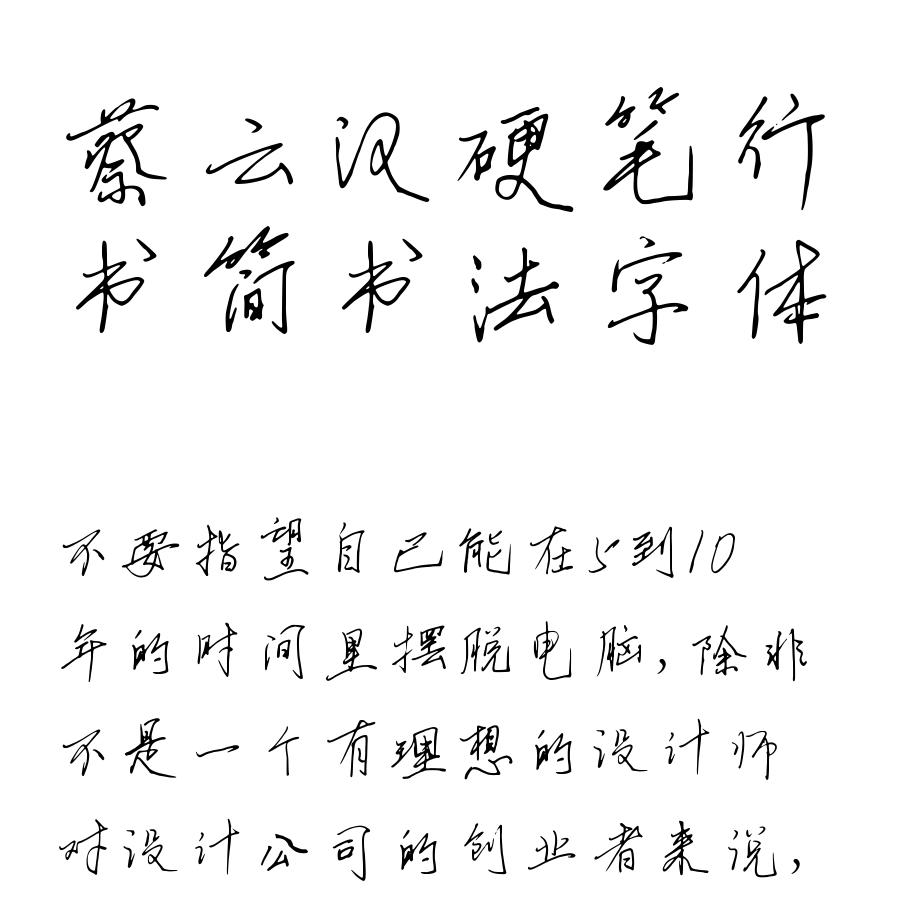 蔡云汉硬笔行
书简书法字体
不要指望自己能在5到10
年的时间里摆脱电脑,除非
不是一个有理想的设计师
对设计公司的创业者来说,